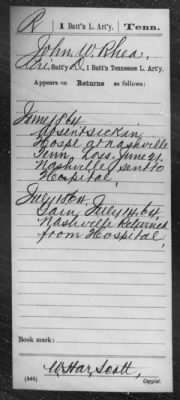 R | 1 Batt'n L. Art'y. | Tenn.
John W. Rhea,
Batt'y D, 1 Batt'n Tennessee L. Art'y.
Appears on Returns as follows:
June 1864
Absent sick in
Hospt at Nashville
Tenn, Loss, June 21,
Nashville, sent to
Hospital,
July 1864.
Gain, July 14, 64,
Nashville Returned
from Hospital,
Book mark:
W. Har. Scott,
(546) Copyist.